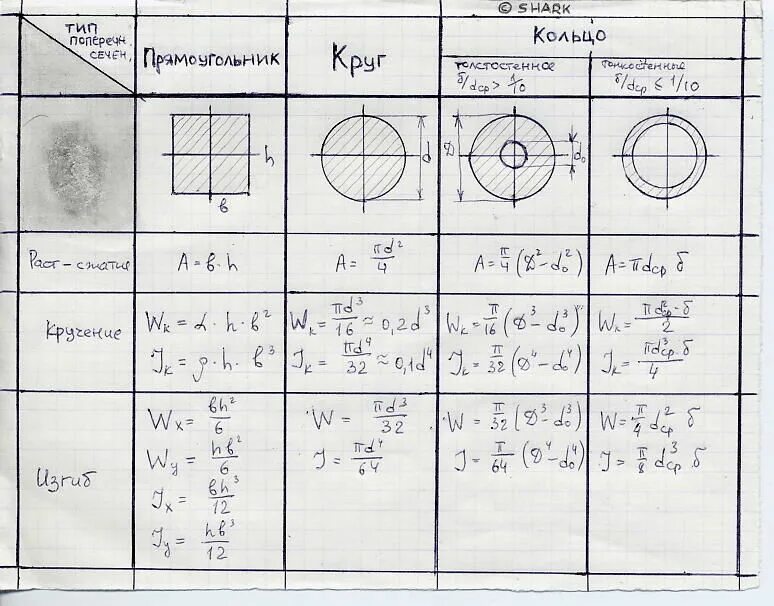 © SHARK
ТИП
ПОПЕРЕЧН.
СЕЧЕН.
Прямоугольник
Круг
Кольцо
толстостенное
δ/dср > 1/10
тонкостенные
δ/dср ≤ 1/10
h
в
d
D
d₀
Раст-сжатие
A = в · h
A = πd²/4
A = π/4 (D² - d₀²)
A = πdср δ
Кручение
Wк = α · h · в²
Jк = ρ · h · в³
Wк = πd³/16 ≈ 0,2d³
Jк = πd⁴/32 ≈ 0,1d⁴
Wк = π/16 (D³ - d₀³)
Jк = π/32 (D⁴ - d₀⁴)
Wк = πd²ср · δ/2
Jк = πd³ср · δ/4
Изгиб
Wx = вh²/6
Wy = hв²/6
Jx = вh³/12
Jy = hв³/12
W = πd³/32
J = πd⁴/64
W = π/32 (D³ - d₀³)
J = π/64 (D⁴ - d₀⁴)
W = π/4 d²ср δ
J = π/8 d³ср δ